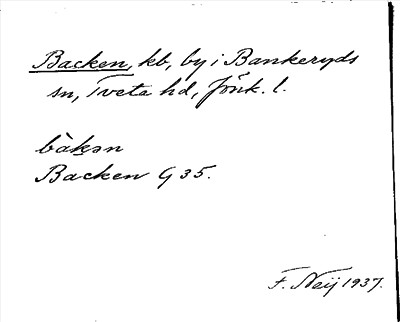 Backen, kb, by i Bankeryds
sn, Tveta hd, Jönk. l.
bàkən
Backen G 35.
F. Neij 1937.